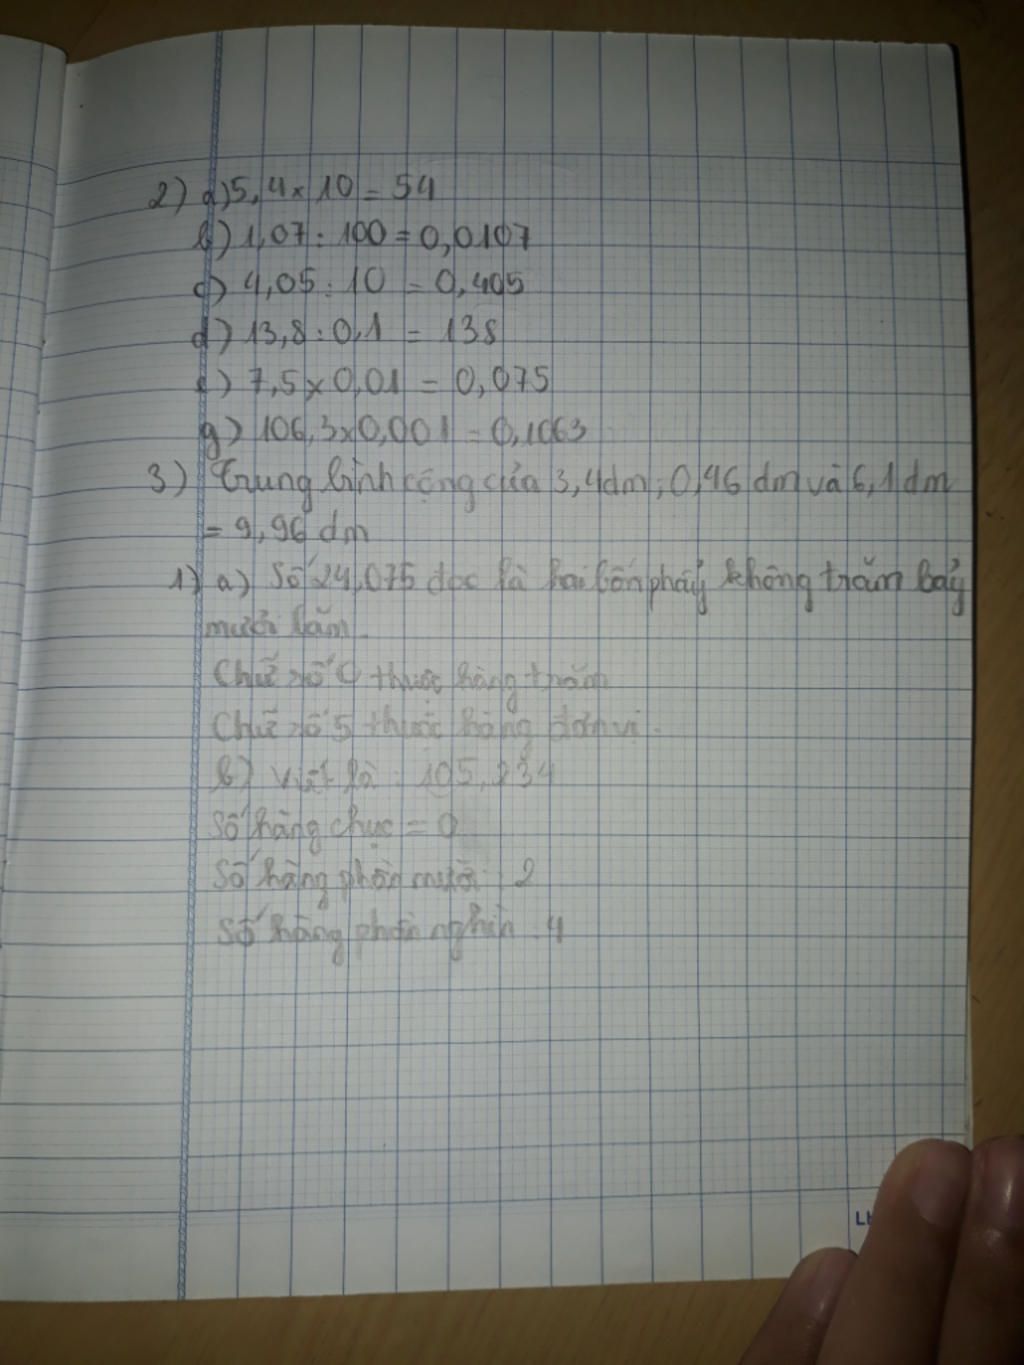 2) a) 5,4 x 10 = 54
b) 1,07 : 100 = 0,0107
c) 4,05 : 10 = 0,405
d) 13,8 : 0,1 = 138
e) 7,5 x 0,01 = 0,075
g) 106,3 x 0,001 = 0,1063
3) Trung bình cộng của 3,4dm; 0,46 dm và 6,1 dm
= 9,96 dm
1) a) Số 24,075 đọc là hai bốn phẩy không trăm bảy
mươi lăm.
Chữ số 0 thuộc hàng trăm
Chữ số 5 thuộc hàng đơn vị.
b) Viết là : 105,234
Số hàng chục = 0
Số hàng phần mười : 2
Số hàng phần nghìn : 4
LH